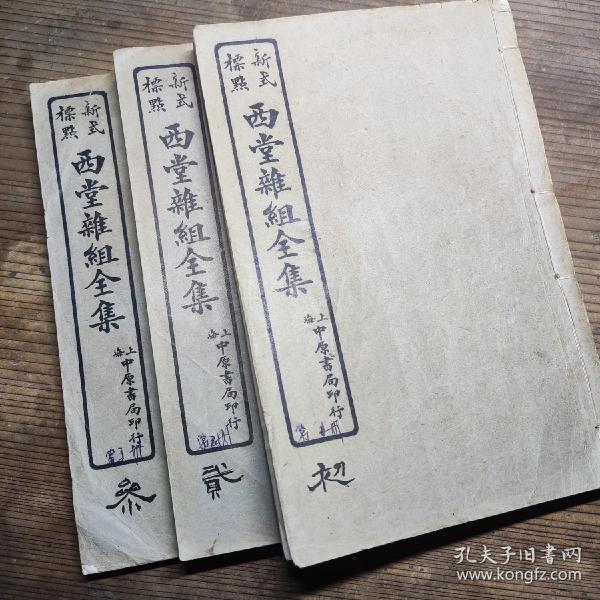 新式
標點
西堂雜組全集
上海
中原書局印行
初
新式
標點
西堂雜組全集
上海
中原書局印行
貳
新式
標點
西堂雜組全集
上海
中原書局印行
叁
孔夫子旧书网
www.kongfz.com